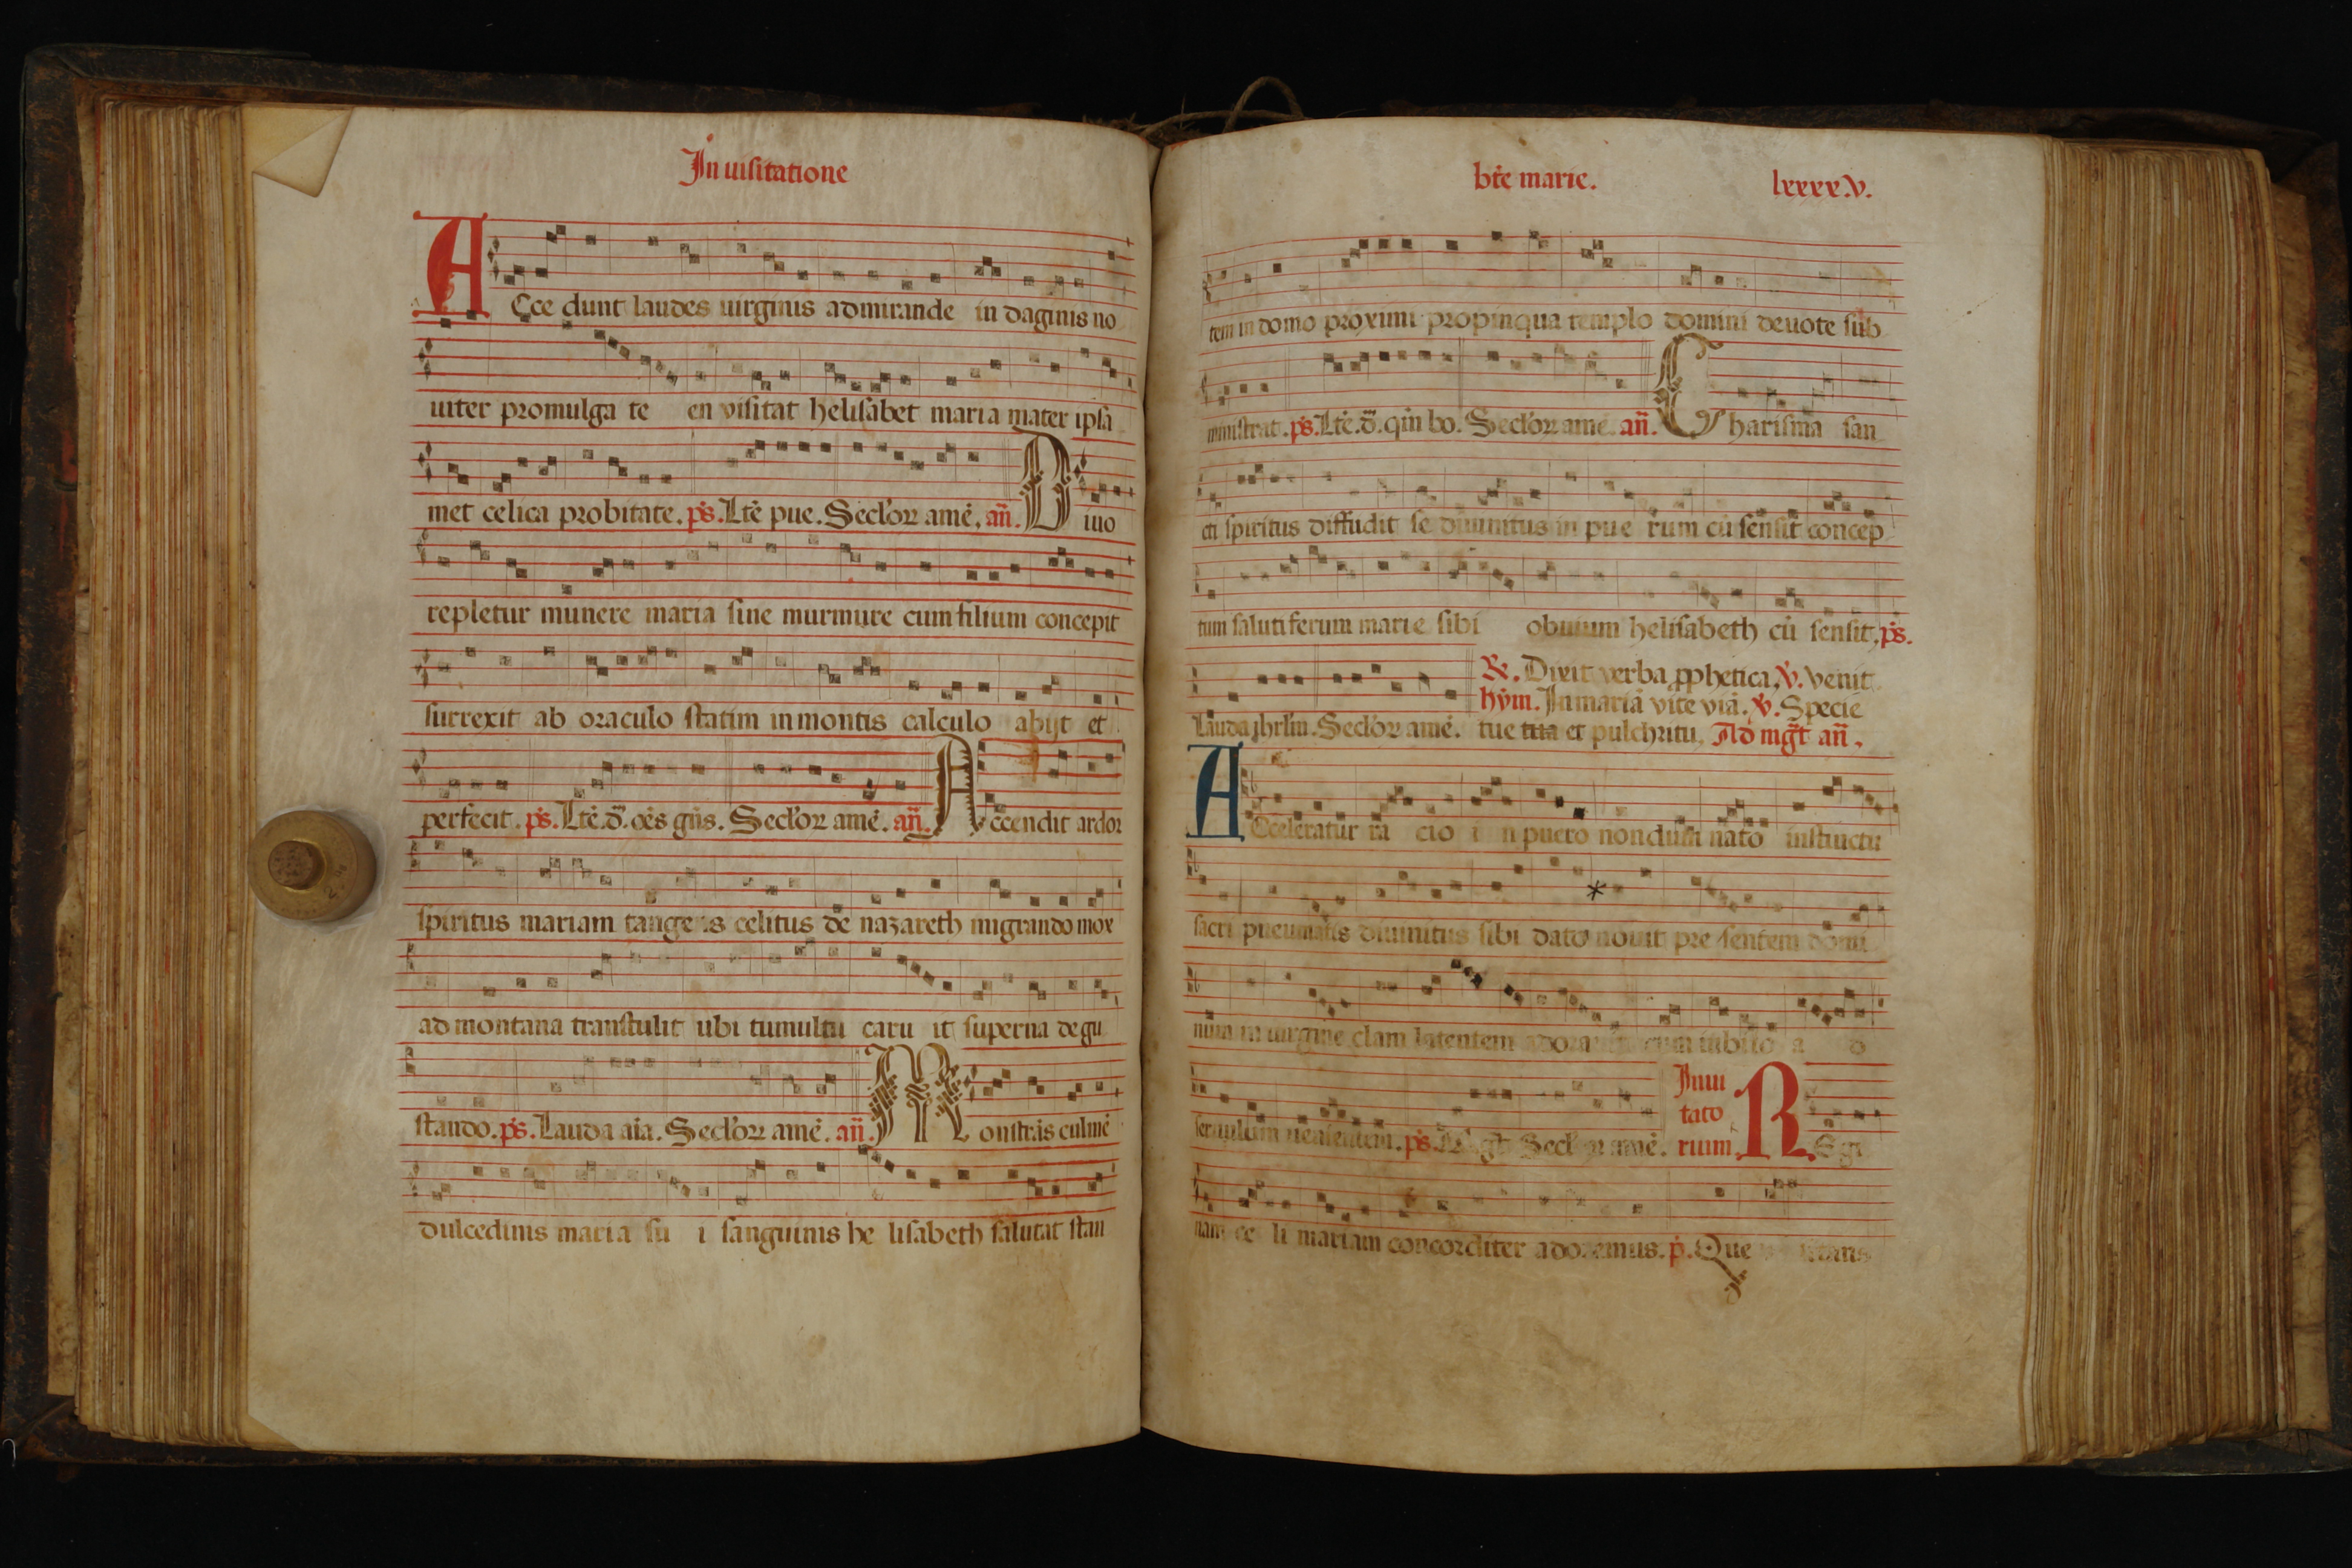 In uisitatione
ACce dunt laudes uirginis admirande in daginis no
uiter promulga te en visitat helisabet maria mater ipsa
met celica probitate. ps. Lte pue. Seclor ame. an. Diuo
repletur munere maria sine murmure cum filium concepit
surrexit ab oraculo statim in montis calculo abijt et
perfecit. ps. Lte. d. oes gns. Seclor ame. an. Accendit ardor
spiritus mariam tangens celitus de nazareth migrando mox
ad montana transtulit ubi tumultu caru it superna degu
stando. ps. Lauda aia. Seclor ame. an. Monstras culme
dulcedinis maria su i sanguinis he lisabeth salutat stan
bte marie. lxxxx.v.
tem in domo proximi propinqua templo domini deuote sub
ministrat. ps. Lte. d. qm bo. Seclor ame. an. Charisma san
cti spiritus diffudit se diuinitus in pue rum cu sensit concep
tum salutiferum marie sibi obuium helisabeth cu sensit. ps.
R. Dixit verba pphetica. V. Venit
hym. In maria vite via. V. Specie
Lauda ihrlm. Seclor ame. tue tua et pulchritu. Ad mgt an.
ACceleratur ra cio i n puero nondum nato instinctu
sacri pneumatis diuinitus sibi dato nouit pre sentem domi
num in uirgine clam latentem cum iubilo a d
templum ps. Seclor ame. Inui
tato
rium. REgi
nam ce li mariam concorditer adoremus. p. Que